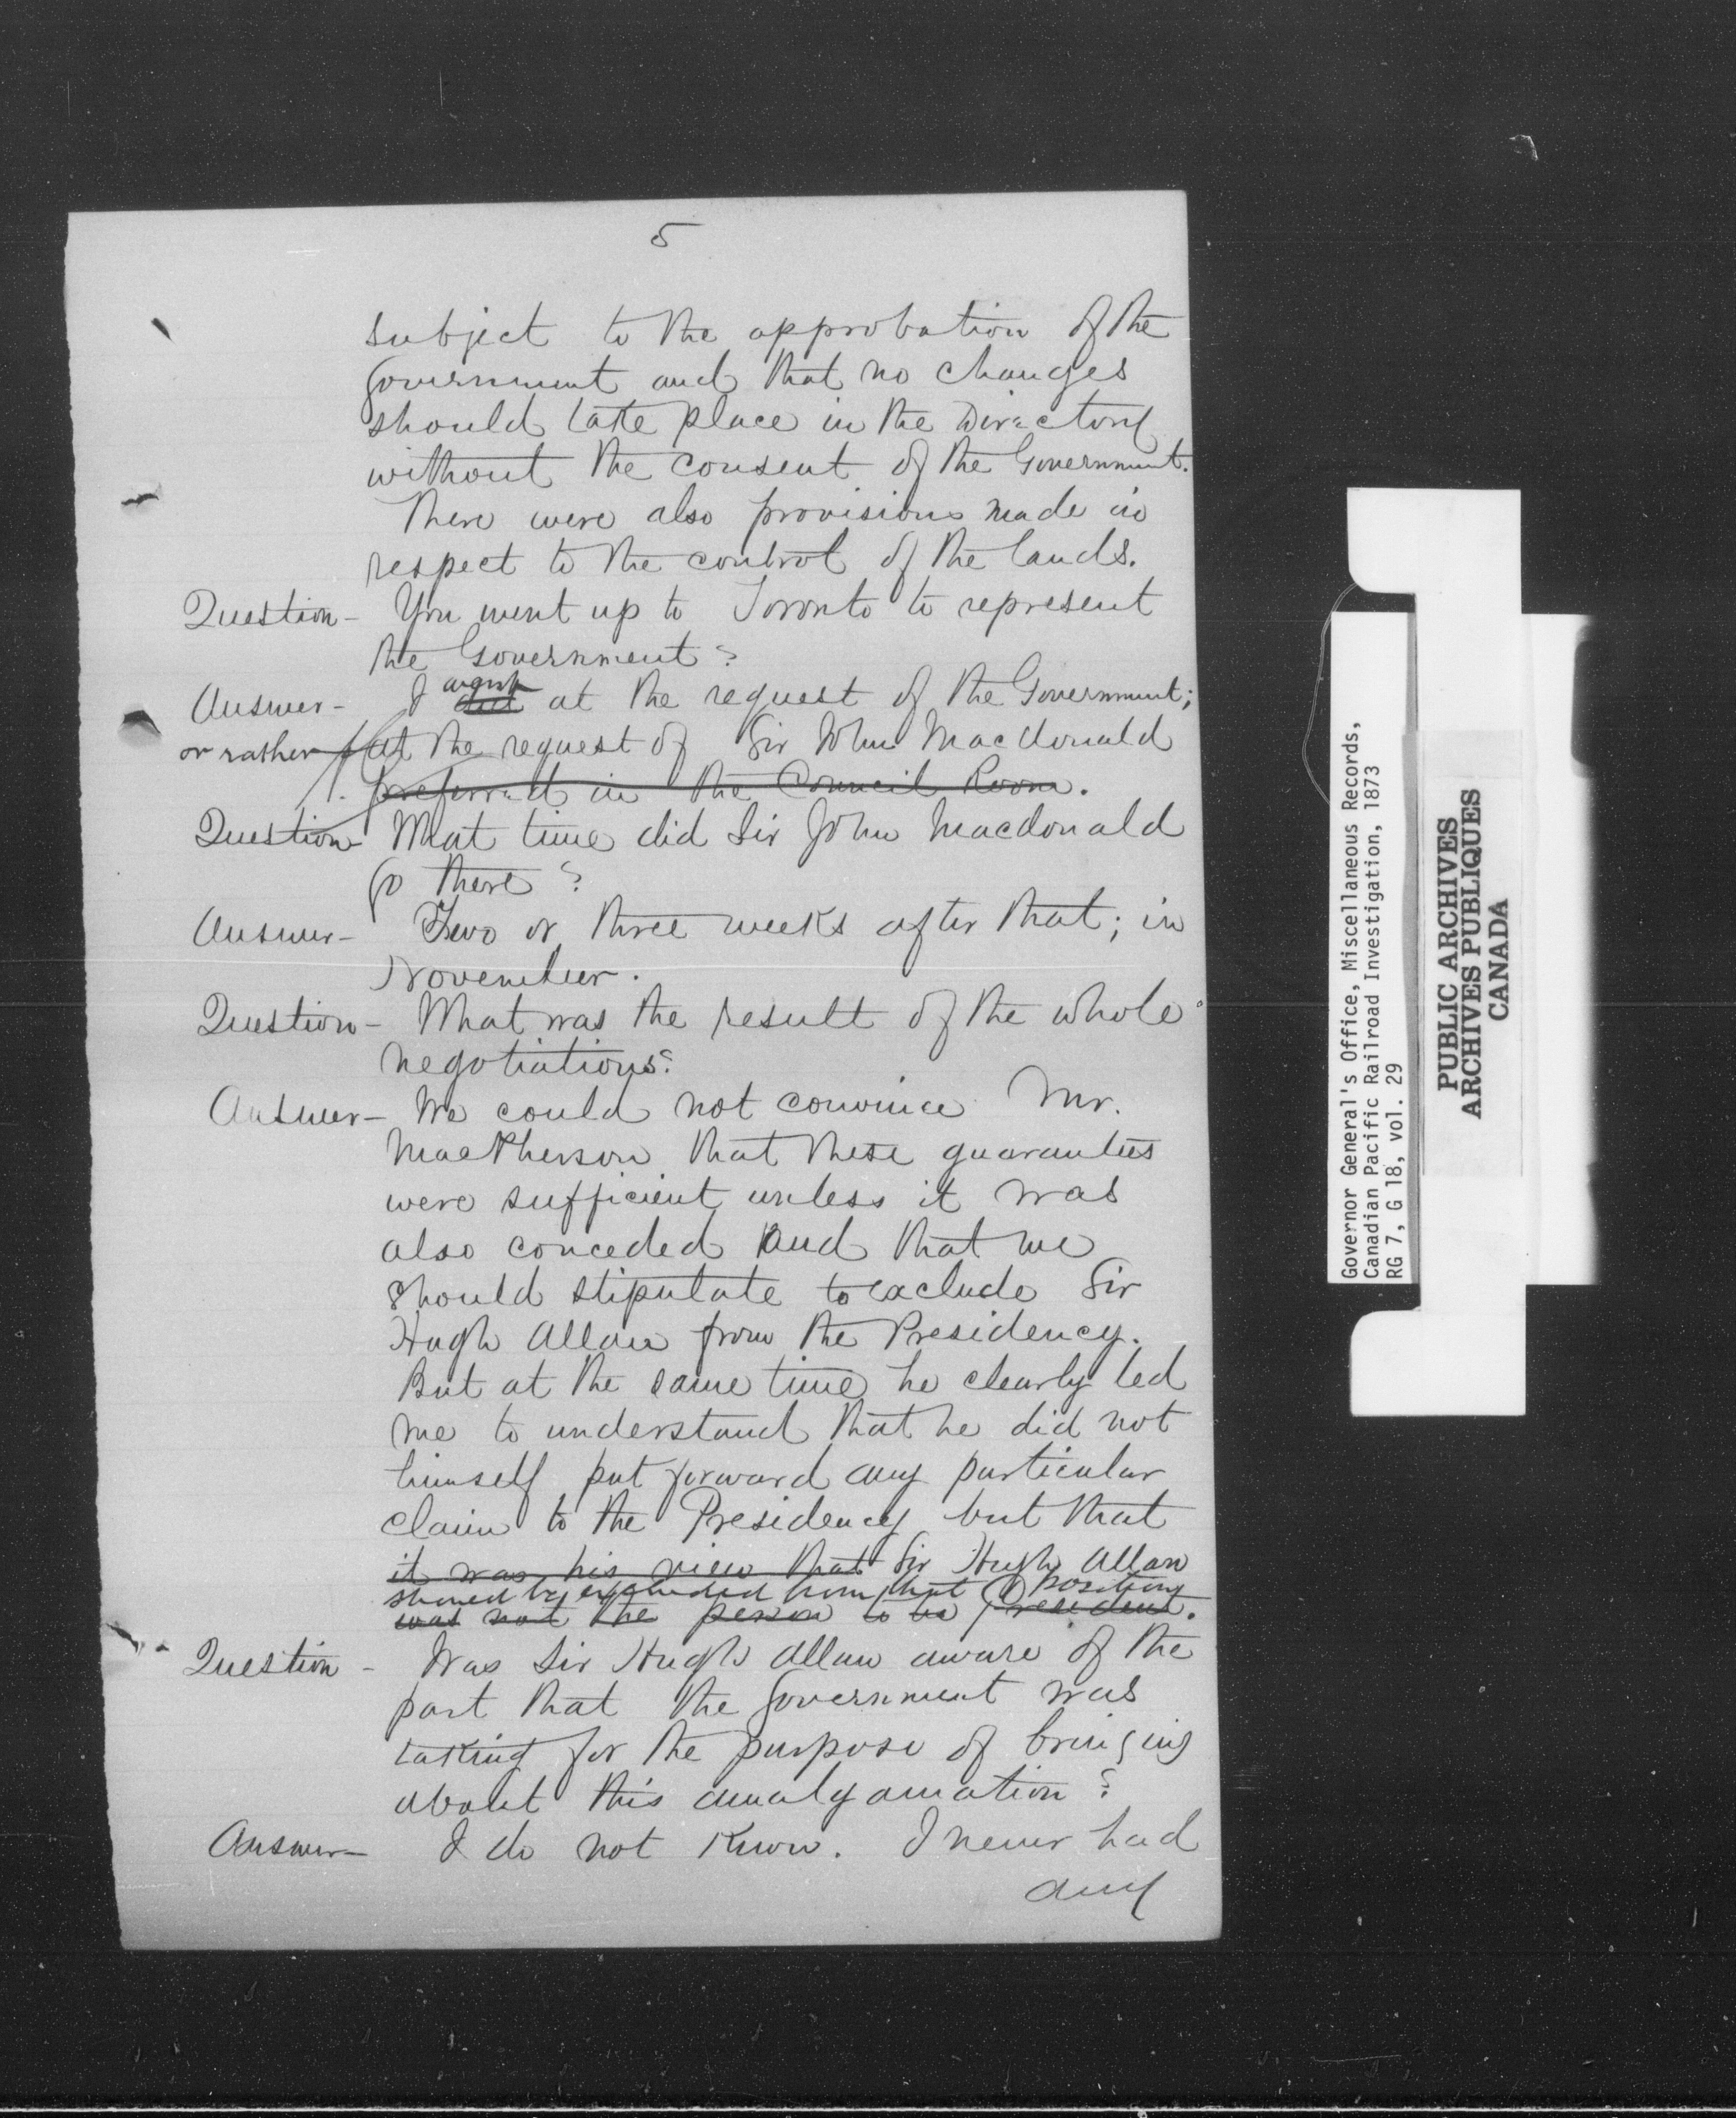 5
subject to the approbation of the
Government and that no changes
should take place in the Directory
without the consent of the Government.
There were also provisions made in
respect to the control of the lands.
Question - You went up to Toronto to represent
the Government?
Answer - I went did at the request of the Government;
or rather at the request of Sir John Macdonald
preferred in the Council Room.
Question - What time did Sir John Macdonald
go there?
Answer - Two or three weeks after that; in
November.
Question - What was the result of the whole
negotiations?
Answer - We could not convince Mr.
MacPherson that these guarantees
were sufficient unless it was
also conceded and that we
should stipulate to exclude Sir
Hugh Allan from the Presidency.
But at the same time he clearly led
me to understand that he did not
himself put forward any particular
claim to the Presidency but that
it was his view that Sir Hugh Allan
should be excluded from that position
was not the person to be President.
Question - Was Sir Hugh Allan aware of the
part that the Government was
taking for the purpose of bringing
about this amalgamation?
Answer - I do not know. I never had
any
Governor General's Office, Miscellaneous Records,
Canadian Pacific Railroad Investigation, 1873
RG 7, G 18, vol. 29
PUBLIC ARCHIVES
ARCHIVES PUBLIQUES
CANADA